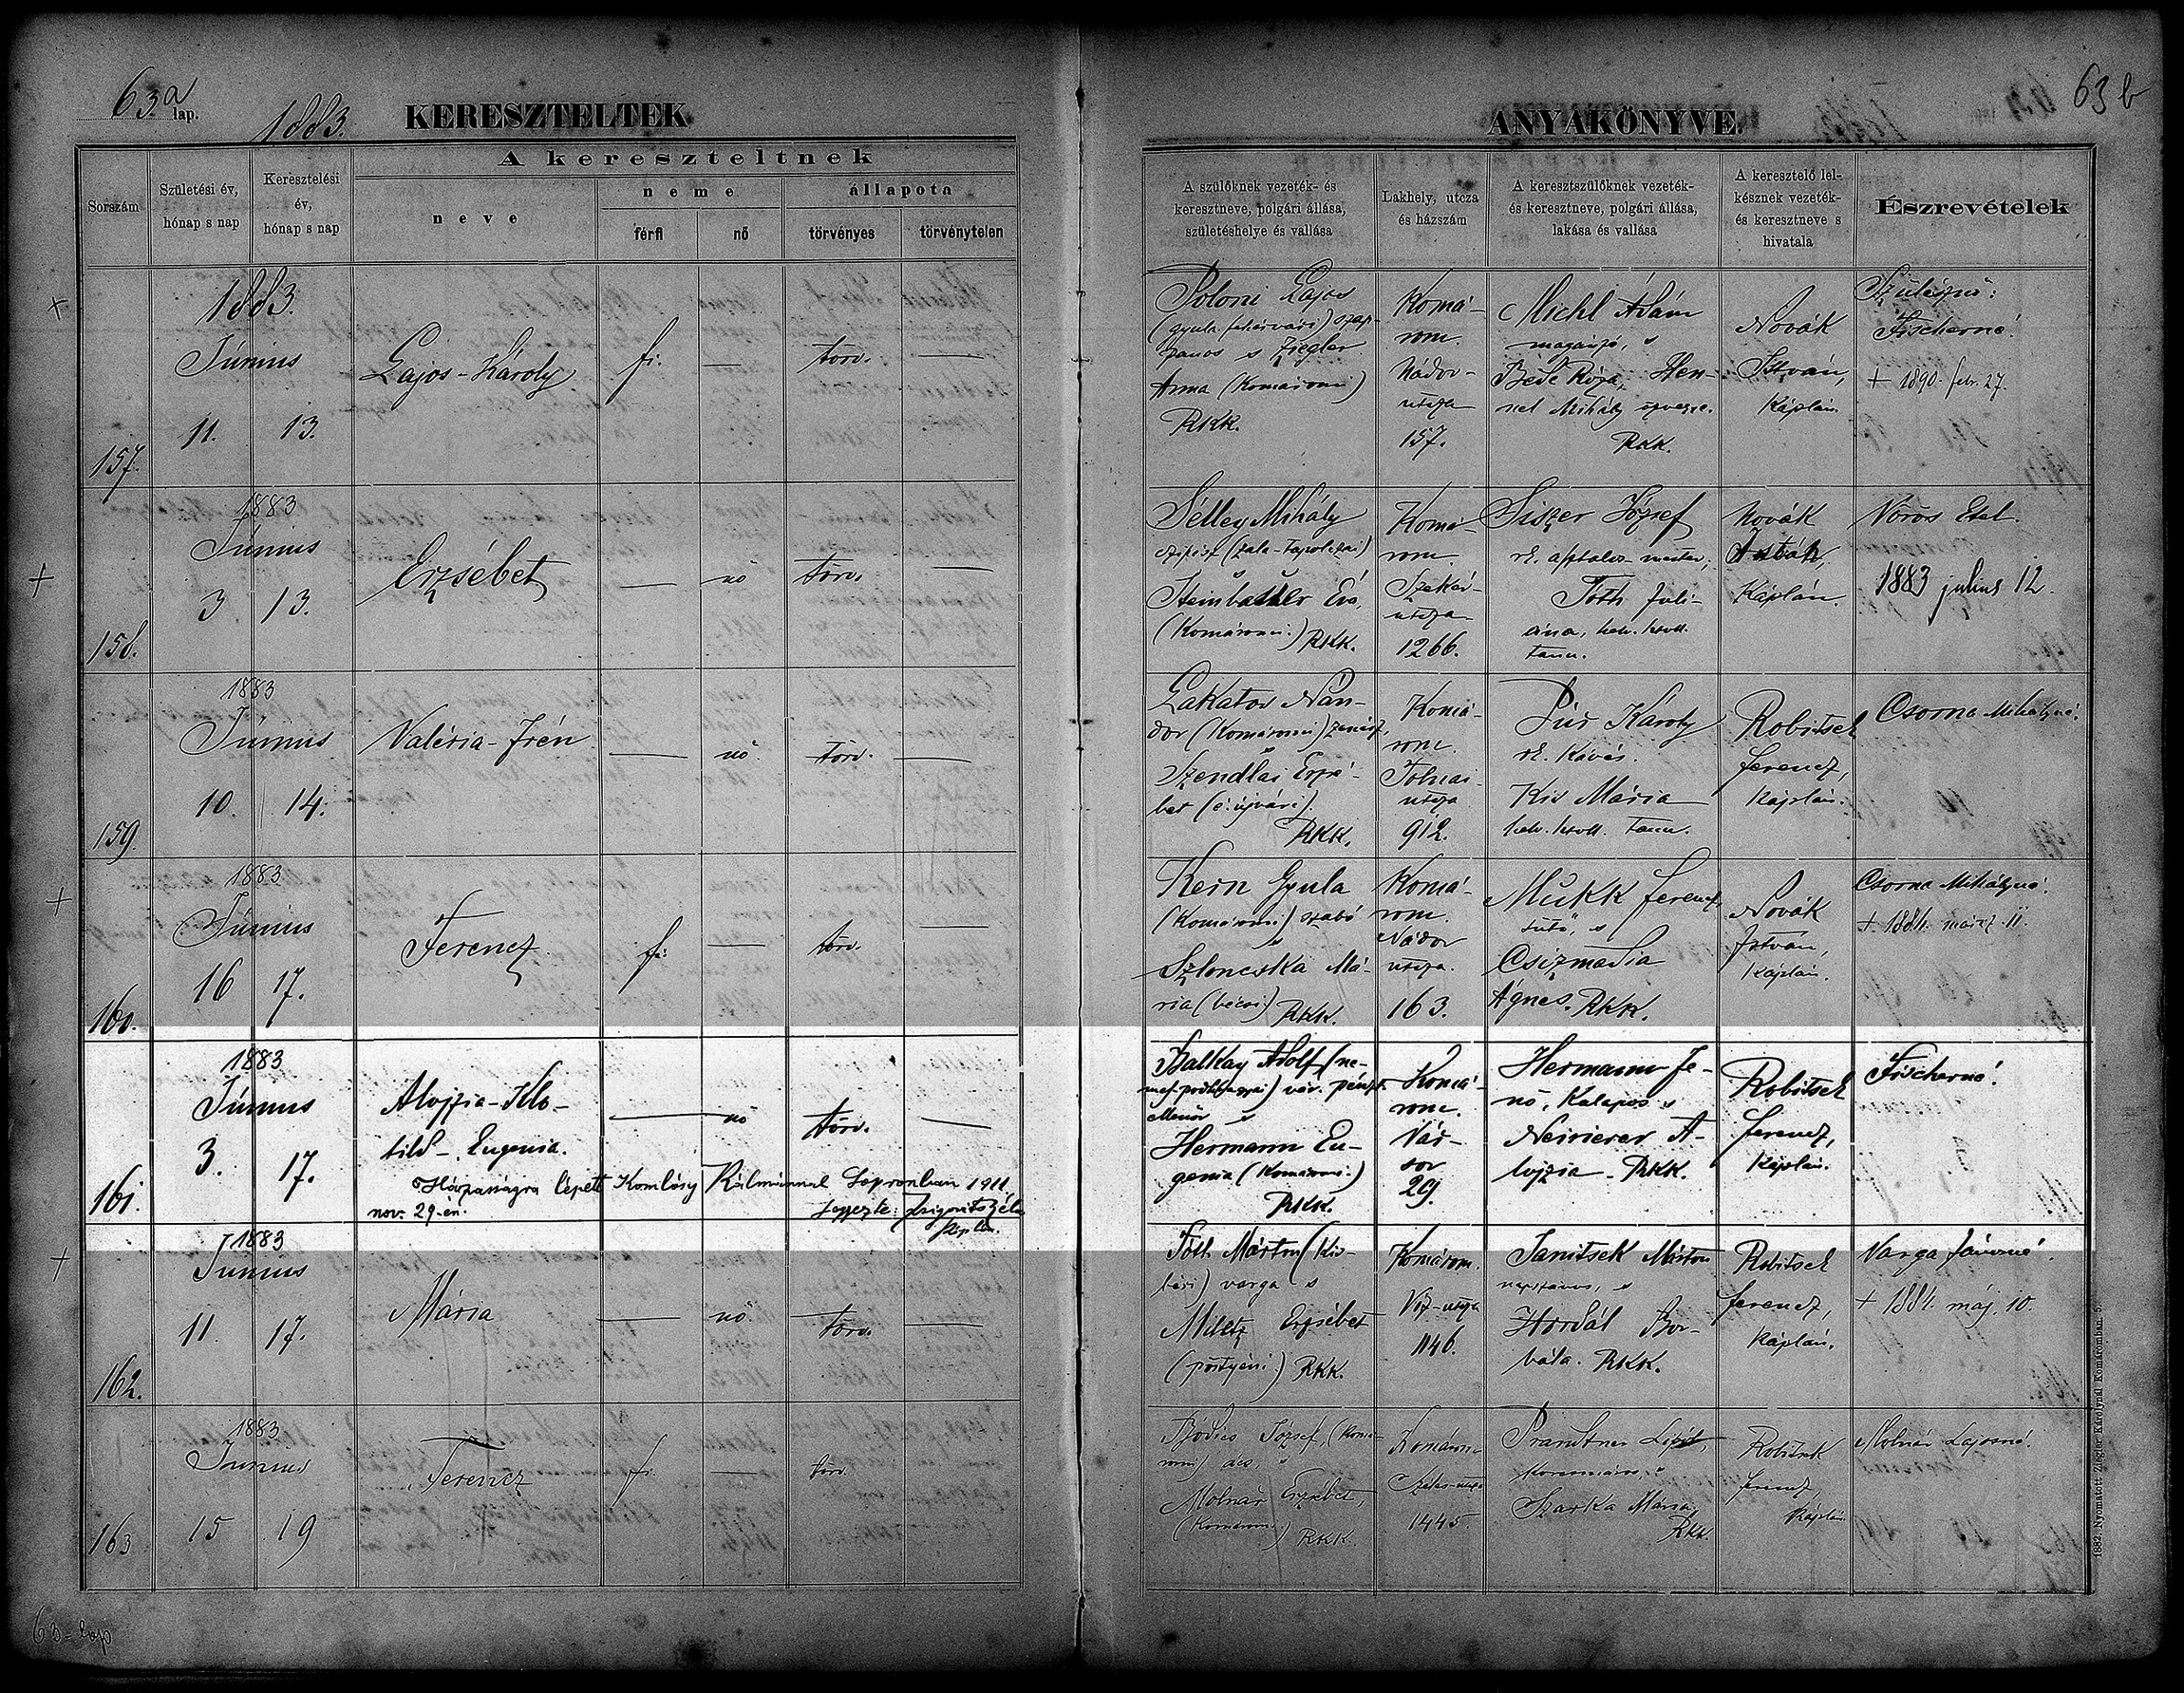 63a lap.
1883.
KERESZTELTEK
ANYAKÖNYVE.
63 b
Sorszám
Születési év, hónap s nap
Keresztelési év, hónap s nap
A kereszteltnek
neve
neme
férfi
nő
állapota
törvényes
törvénytelen
A szülőknek vezeték- és
keresztneve, polgári állása,
születéshelye és vallása
Lakhely, utcza
és házszám
A keresztszülőknek vezeték-
és keresztneve, polgári állása,
lakása és vallása
A keresztelő lel-
késznek vezeték-
és keresztneve s
hivatala
Észrevételek
157.
1883.
Június
11. 13.
Lajos-Károly
fi. — törv. —
Poloni Lajos
(gyula fehérvári) szap-
panos s Ziegler
Anna (Komáromi)
RKK.
Komá-
rom.
Nádor-
utcza
157.
Michl Ádám
magánzó, s
Bede Róza, Hen-
nel Mihály özvegye.
RKK.
Novák
István,
Káplán.
Szülésznő:
Fischerné.
+ 1890. febr. 27.
158.
1883
Június
3 13.
Erzsébet
— nő törv. —
Sélley Mihály
czipész (zala-tapolczai)
Éva,
(Komáromi.) RKK.
Komá-
rom.
Szekér-
utcza
1266.
Siszer József
rk. asztalos-mester,
Tóth Juli-
ána, helv. hitvall.
tanu.
Novák
István,
Káplán.
Vörös Etel.
1883 julius 12.
159.
1883
Június
10. 14.
Valéria-Irén
— nő. törv. —
Lakatos Nán-
dor (Komáromi) zenész,
Szendlai Erzsé-
bet (é. újvári).
RKK.
Komá-
rom.
Tolnai-
utcza
912.
Púr Károly
rk. Kávés.
Kis Mária
helv. hitvall. tanu.
Robitsek
Ferencz,
Káplán.
Csorna Mihályné.
160.
1883
Június
16 17.
Ferencz.
fi. — törv. —
Kern Gyula
(Komáromi) szabó
s
Szloncska Má-
ria (bécsi) RKK.
Komá-
rom.
Nádor
utcza.
163.
Mukk Ferencz,
sütő, s
Csizmadia
Ágnes. RKK.
Novák
István,
Káplán.
Csorna Mihályné.
+ 1884. márcz. 11.
161.
1883
Június
3. 17.
Alojzia-Klo-
tild-Eugenia.
— nő törv. —
Házasságra lépett Komlósy Kálmánnal Sopronban 1911.
nov. 29-én.
Jegyezte: Béla
káplán.
Balkay Adolf (ne-
) vár. pénzt.
ellenőr s
Hermann Eu-
genia (Komáromi.)
RKK.
Komá-
rom.
Vár-
sor
29.
Hermann Je-
nő, Kalapos s
A-
lojzia - RKK.
Robitsek
Ferencz,
Káplán.
Fischerné.
162.
1883
Június
11. 17.
Mária
— nő. törv. —
Tóth Márton (Kis-
béri) varga s
Miletz Erzsébet
(pöstyéni.) RKK.
Komárom.
Víz-utcza
1146.
Janitsek Márton
napszámos, s
Hordál Bor-
bála. RKK.
Robitsek
Ferencz,
Káplán.
Varga Jánosné.
+ 1884. máj. 10.
163
1883
Június
15 19
Ferencz
fi. — törv.
Bödics József, (Komá-
romi) ács, s
Molnár Erzsébet,
(Komáromi.) RKK.
Komárom
Széles-utcza
1445.
Prandtner Lipót,
Korcsmáros, s
Szarka Mária,
RKK.
Robitsek
Ferencz,
Káplán.
Molnár Lajosné.
1882. Nyomatott Ziegler Károlynál Komáromban. 5.
63-lap